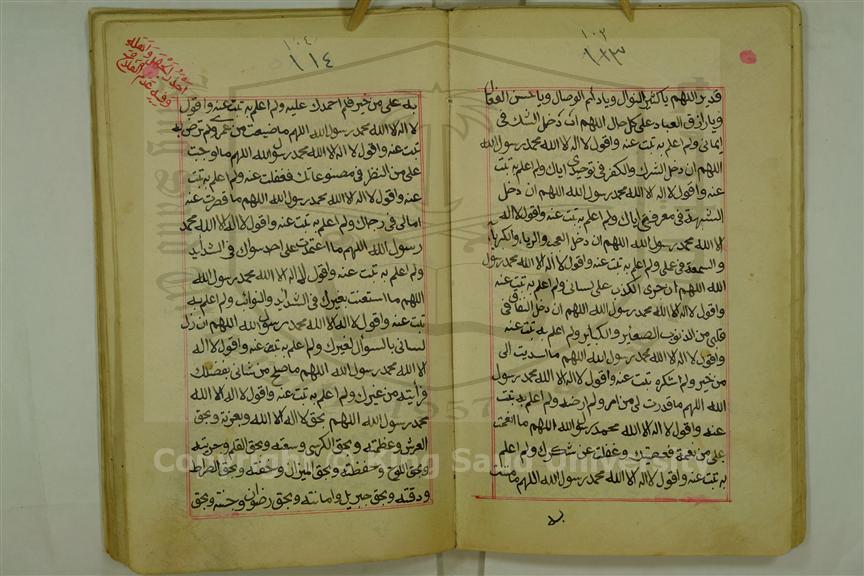 ١٠٣
١١٣
قدير اللهم يا كثير النوال ويا دائم الوصال ويا حسن الفعال
ويا رازق العباد على كل حال اللهم ان دخل الشك فى
ايمانى ولم اعلم به تبت عنه واقول لا اله الا الله محمد رسول الله
اللهم ان دخل الشرك والكفر فى توحيدى اياك ولم اعلم به تبت
عنه واقول لا اله الا الله محمد رسول الله اللهم ان دخل
الشبهة فى معرفتى اياك ولم اعلم به تبت عنه واقول لا اله
الا الله محمد رسول الله اللهم ان دخل العجب والرياء والكبرياء
والسمعة فى عملى ولم اعلم به تبت عنه واقول لا اله الا الله محمد رسول
الله اللهم ان جرى الكذب على لسانى ولم اعلم به تبت عنه
واقول لا اله الا الله محمد رسول الله اللهم ان دخل النفاق فى
قلبى من الذنوب الصغاير والكباير ولم اعلم به تبت عنه
واقول لا اله الا الله محمد رسول الله اللهم ما اسديت الى
من خير ولم اشكره تبت عنه واقول لا اله الا الله محمد رسول
الله اللهم ما قدرت لى من امر ولم ارضه ولم اعلم به تبت
عنه واقول لا اله الا الله محمد رسول الله اللهم ما انعمت
على من نعمة فعصيتك وغفلت عن شكرك ولم اعلم
به تبت عنه واقول لا اله الا الله محمد رسول الله اللهم ما مننت
به
١٠٤
١١٤
به على من خير فلم احمدك عليه ولم اعلم به تبت عنه واقول
لا اله الا الله محمد رسول الله اللهم ما ضيعت من عمرى ولم ترض به
تبت عنه واقول لا اله الا الله محمد رسول الله اللهم ما اوجبت
على من النظر فى مصنوعاتك فغفلت عنه ولم اعلم به تبت
عنه واقول لا اله الا الله محمد رسول الله اللهم ما قصرت عنه
امالى فى رجاك ولم اعلم به تبت عنه واقول لا اله الا الله محمد
رسول الله اللهم ما اعتمدت على احد سواك فى الشدايد
ولم اعلم به تبت عنه واقول لا اله الا الله محمد رسول الله
اللهم ما استعنت بغيرك فى الشدايد والنوائب ولم اعلم به
تبت عنه واقول لا اله الا الله محمد رسول الله اللهم ان زل
لسانى بالسوال لغيرك ولم اعلم به تبت عنه واقول لا اله
الا الله محمد رسول الله اللهم ما صلح من شانى بفضلك
فرأيته من غيرك ولم اعلم به تبت عنه واقول لا اله الا الله
محمد رسول الله اللهم بحق لا اله الا الله وبعزته وبحق
العرش وعظمته وبحق الكرسى وسعته وبحق القلم وجريته
وبحق اللوح وحفظته وبحق الميزان وخفته وبحق الصراط
ودقته وبحق جبريل وامانته وبحق رضوان وجنته وبحق
Copyright © King Saud University
1957